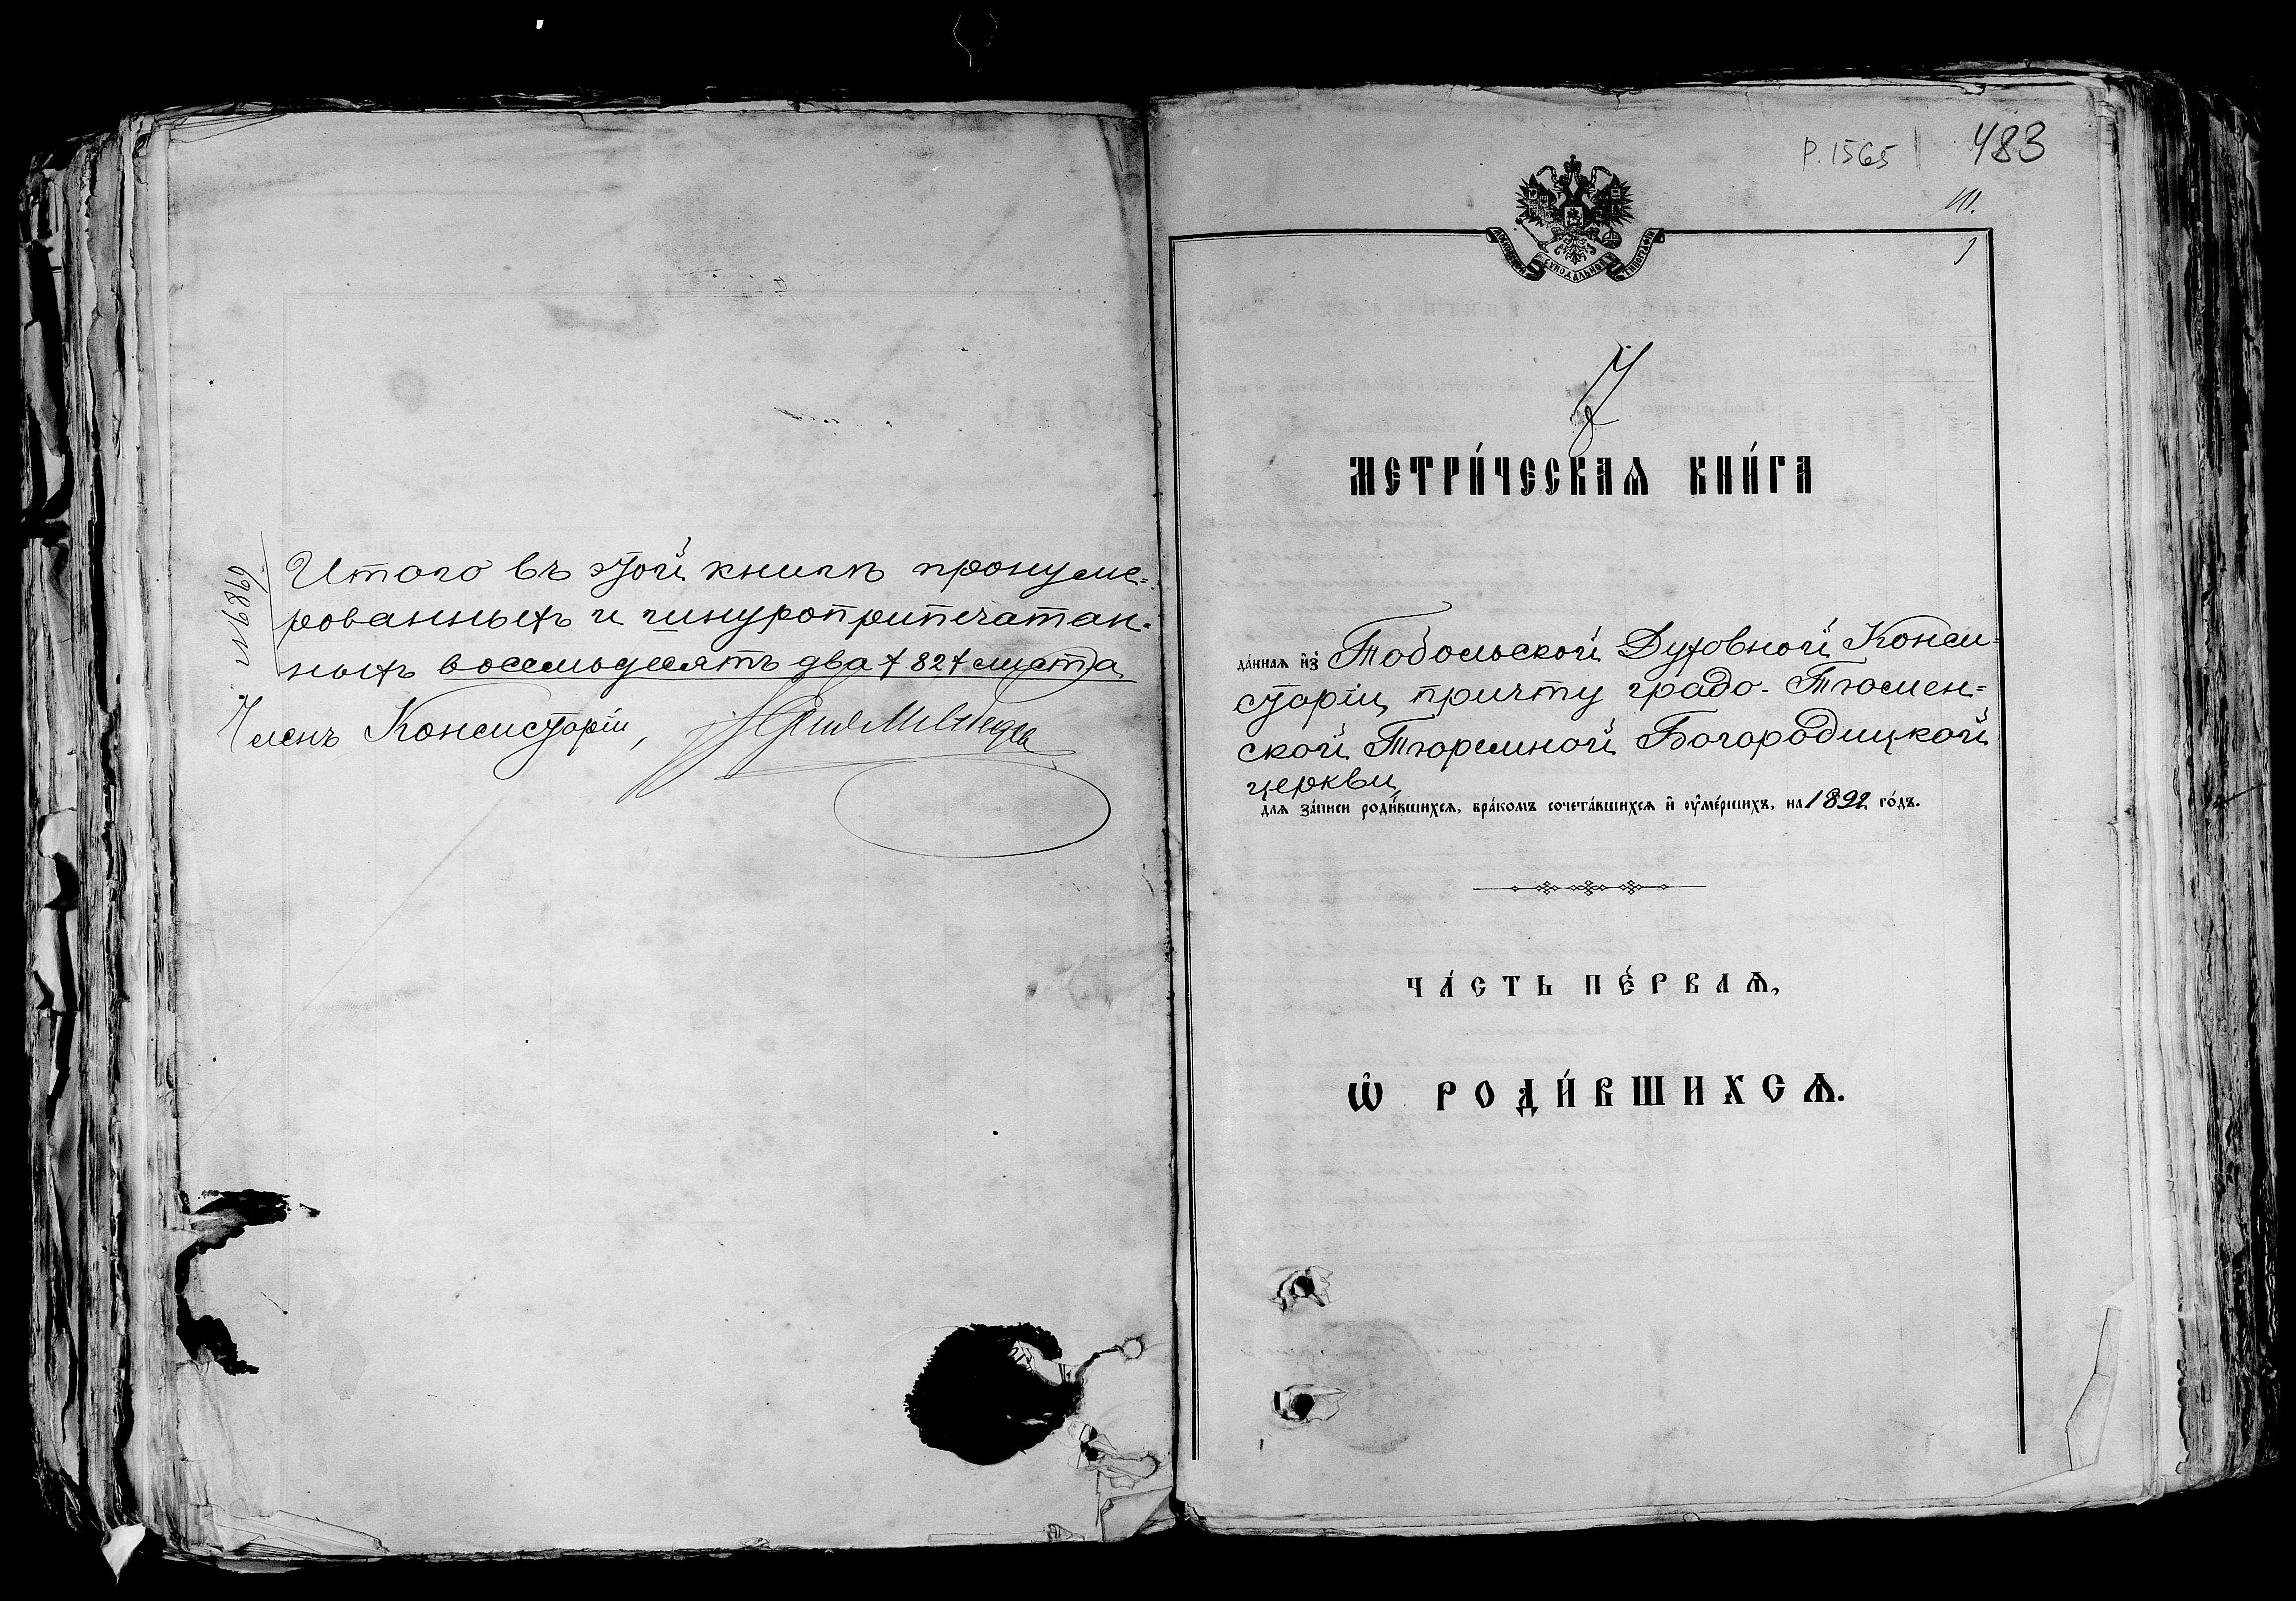 № 6869
Итого въ этой книгѣ пронуме-
рованныхъ и шнуроприпечатан-
ныхъ восемьдесятъ два † 82 † листа
Членъ Консисторіи,
Р. 1565 483
1
МОСКОВСКОЙ СѴНОДАЛЬНОЙ ТИПОГРАФІИ
МЕТРИ́ЧЕСКАѦ КНИ́ГА
да́ннаѧ и҆зъ Тобольской Духовной Конси-
сторіи причту градо-Тюмен-
ской Тюремной Богородицкой
церкви,
длѧ за́писи роди́вшихсѧ, бра́комъ сочета́вшихсѧ и҆ ѹ҆ме́ршихъ, на 1892 го́дъ.
ЧА́СТЬ ПЕ́РВАѦ,
Ѡ҆ РОДИ́ВШИХСѦ.